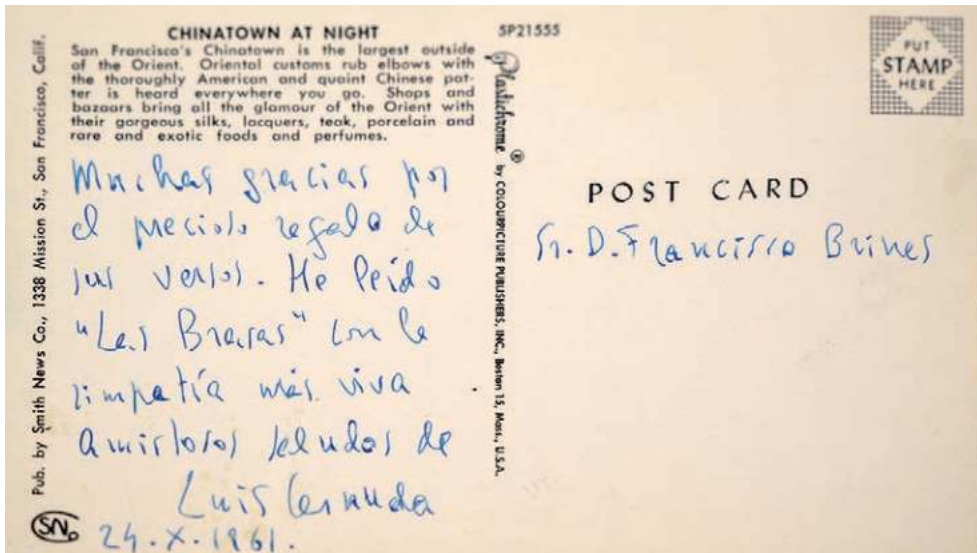 CHINATOWN AT NIGHT
San Francisco's Chinatown is the largest outside
of the Orient. Oriental customs rub elbows with
the thoroughly American and quaint Chinese pat-
ter is heard everywhere you go. Shops and
bazaars bring all the glamour of the Orient with
their gorgeous silks, lacquers, teak, porcelain and
rare and exotic foods and perfumes.
Muchas gracias por
el precioso regalo de
sus versos. He leído
"Las Brasas" con la
simpatía más viva
Amistosos saludos de
Luis Cernuda
24.X.1961.
Pub. by Smith News Co., 1338 Mission St., San Francisco, Calif.
SN
SP21555
Plastichrome ® by COLOURPICTURE PUBLISHERS, INC., Boston 15, Mass., U.S.A.
PUT
STAMP
HERE
POST CARD
Sr. D. Francisco Brines